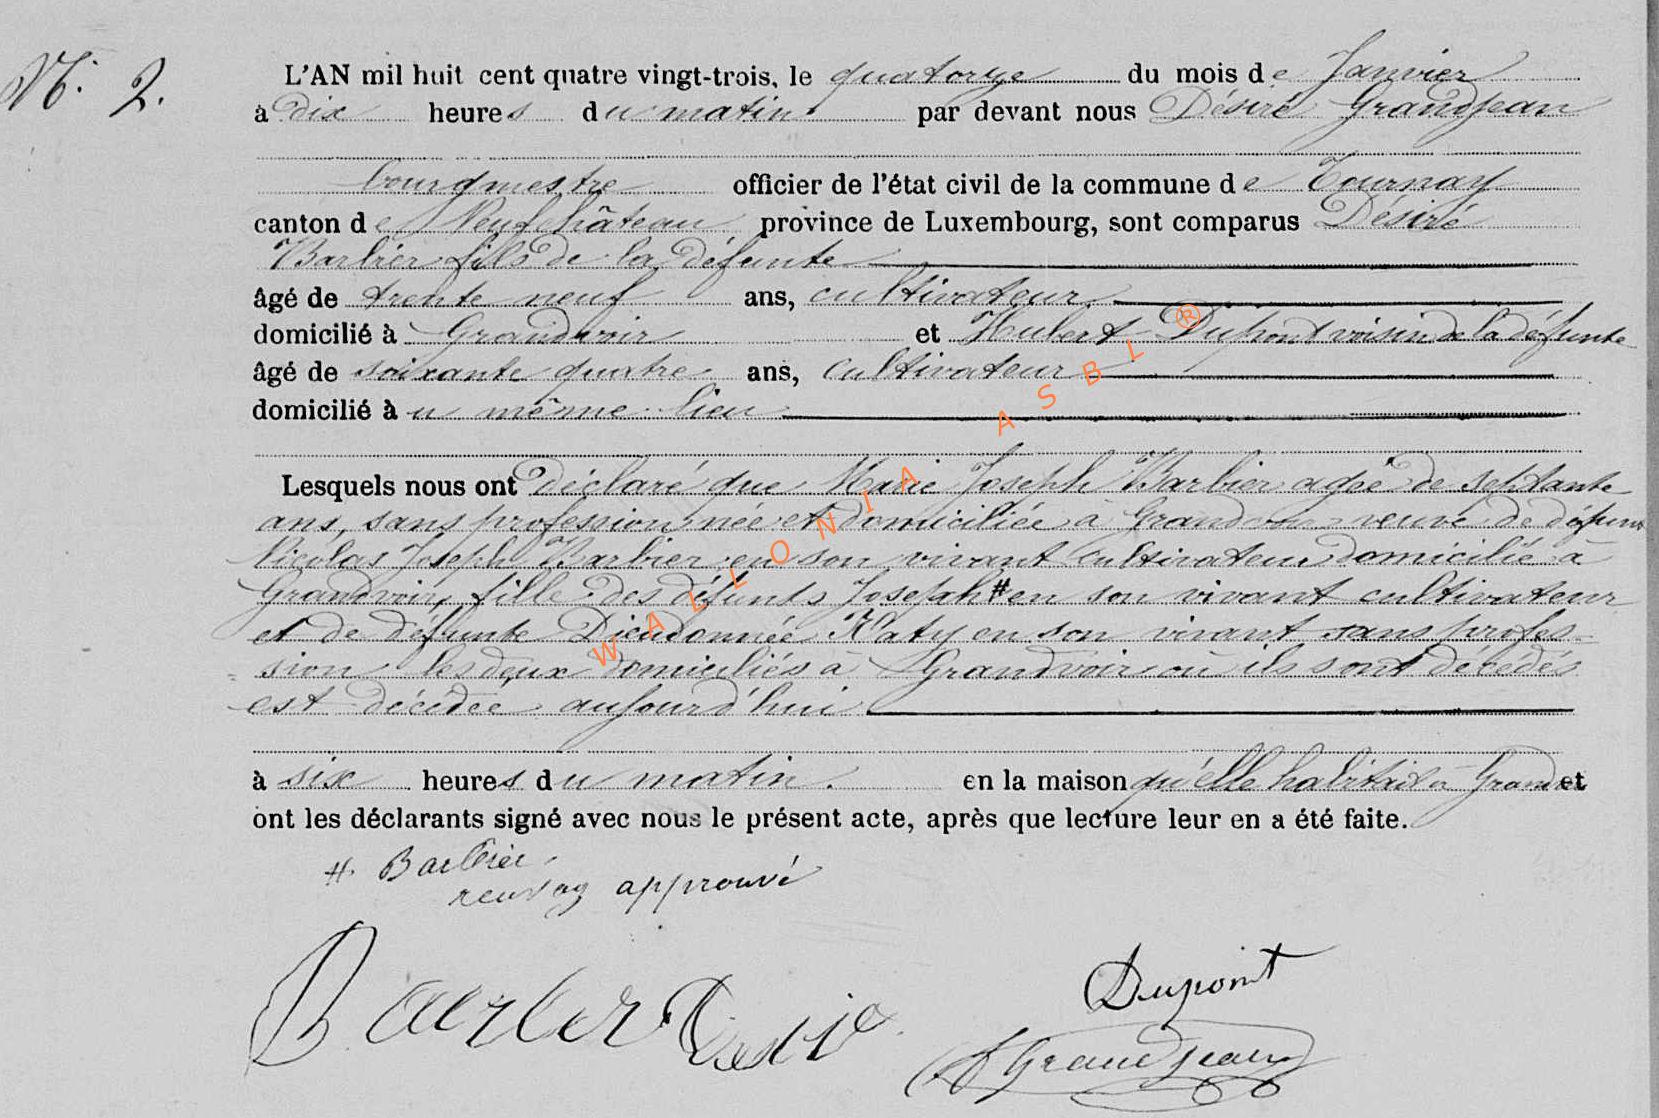 N° 2.
L'AN mil huit cent quatre vingt-trois, le quatorze du mois de Janvier
à dix heures du matin par devant nous Désiré Grandjean
bourgmestre officier de l'état civil de la commune de Tournay
canton de Neufchâteau province de Luxembourg, sont comparus Désiré
Barbier fils de la défunte
âgé de trente neuf ans, cultivateur
domicilié à Grandvoir et Hubert Dupont voisin de la défunte
âgé de soixante quatre ans, cultivateur
domicilié au même lieu
Lesquels nous ont déclaré que Marie Joseph Barbier agée de septante
ans, sans profession née et domiciliée à Grandvoir veuve de défunt
Nicolas Joseph Barbier en son vivant cultivateur domicilié à
Grandvoir, fille des défunts Joseph # en son vivant cultivateur
et de défunte Dieudonnée Katy en son vivant sans profes-
sion les deux domiciliés à Grandvoir où ils sont décédés
est décédée aujourd'hui
à six heures du matin. en la maison qu'elle habitait à Grandvoir et
ont les déclarants signé avec nous le présent acte, après que lecture leur en a été faite.
# Barbier
renvoy approuvé
Barbier Désiré
Dupont
D Grandjean
WALLONIA ASBL ®